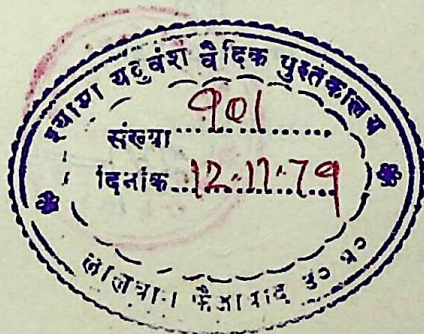 श्यामा यदुवंश वैदिक पुस्तकालय
संख्या 901
दिनांक 12.11.79
फैजाबाद उ० प्र०